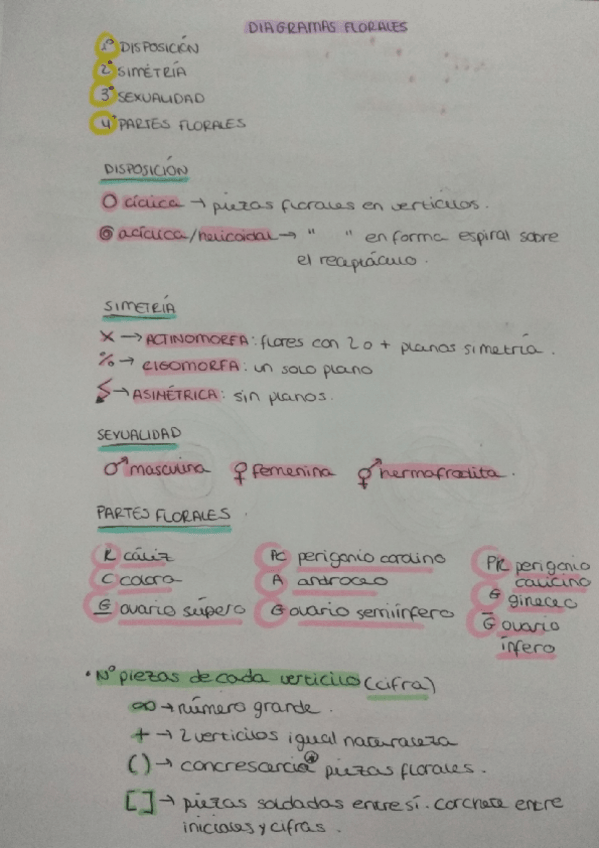 DIAGRAMAS FLORALES
1º DISPOSICIÓN
2º SIMETRÍA
3º SEXUALIDAD
4º PARTES FLORALES
DISPOSICIÓN
cíclica → piezas florales en verticilos.
acíclica/helicoidal → " " en forma espiral sobre
el receptáculo.
SIMETRÍA
× → ACTINOMORFA: flores con 2 o + planos simetría.
% → CIGOMORFA: un solo plano
→ ASIMÉTRICA: sin planos.
SEXUALIDAD
♂ masculina ♀ femenina ⚥ hermafrodita.
PARTES FLORALES
K cáliz PC perigonio corolino PK perigonio
C corola A androceo calicino
G ovario súpero G ovario semiínfero G gineceo
G ovario
ínfero
• Nº piezas de cada verticilo (cifra)
∞ → número grande.
+ → 2 verticilos igual naturaleza
( ) → concrescencia piezas florales.
[ ] → piezas soldadas entre sí. corchete entre
iniciales y cifras.